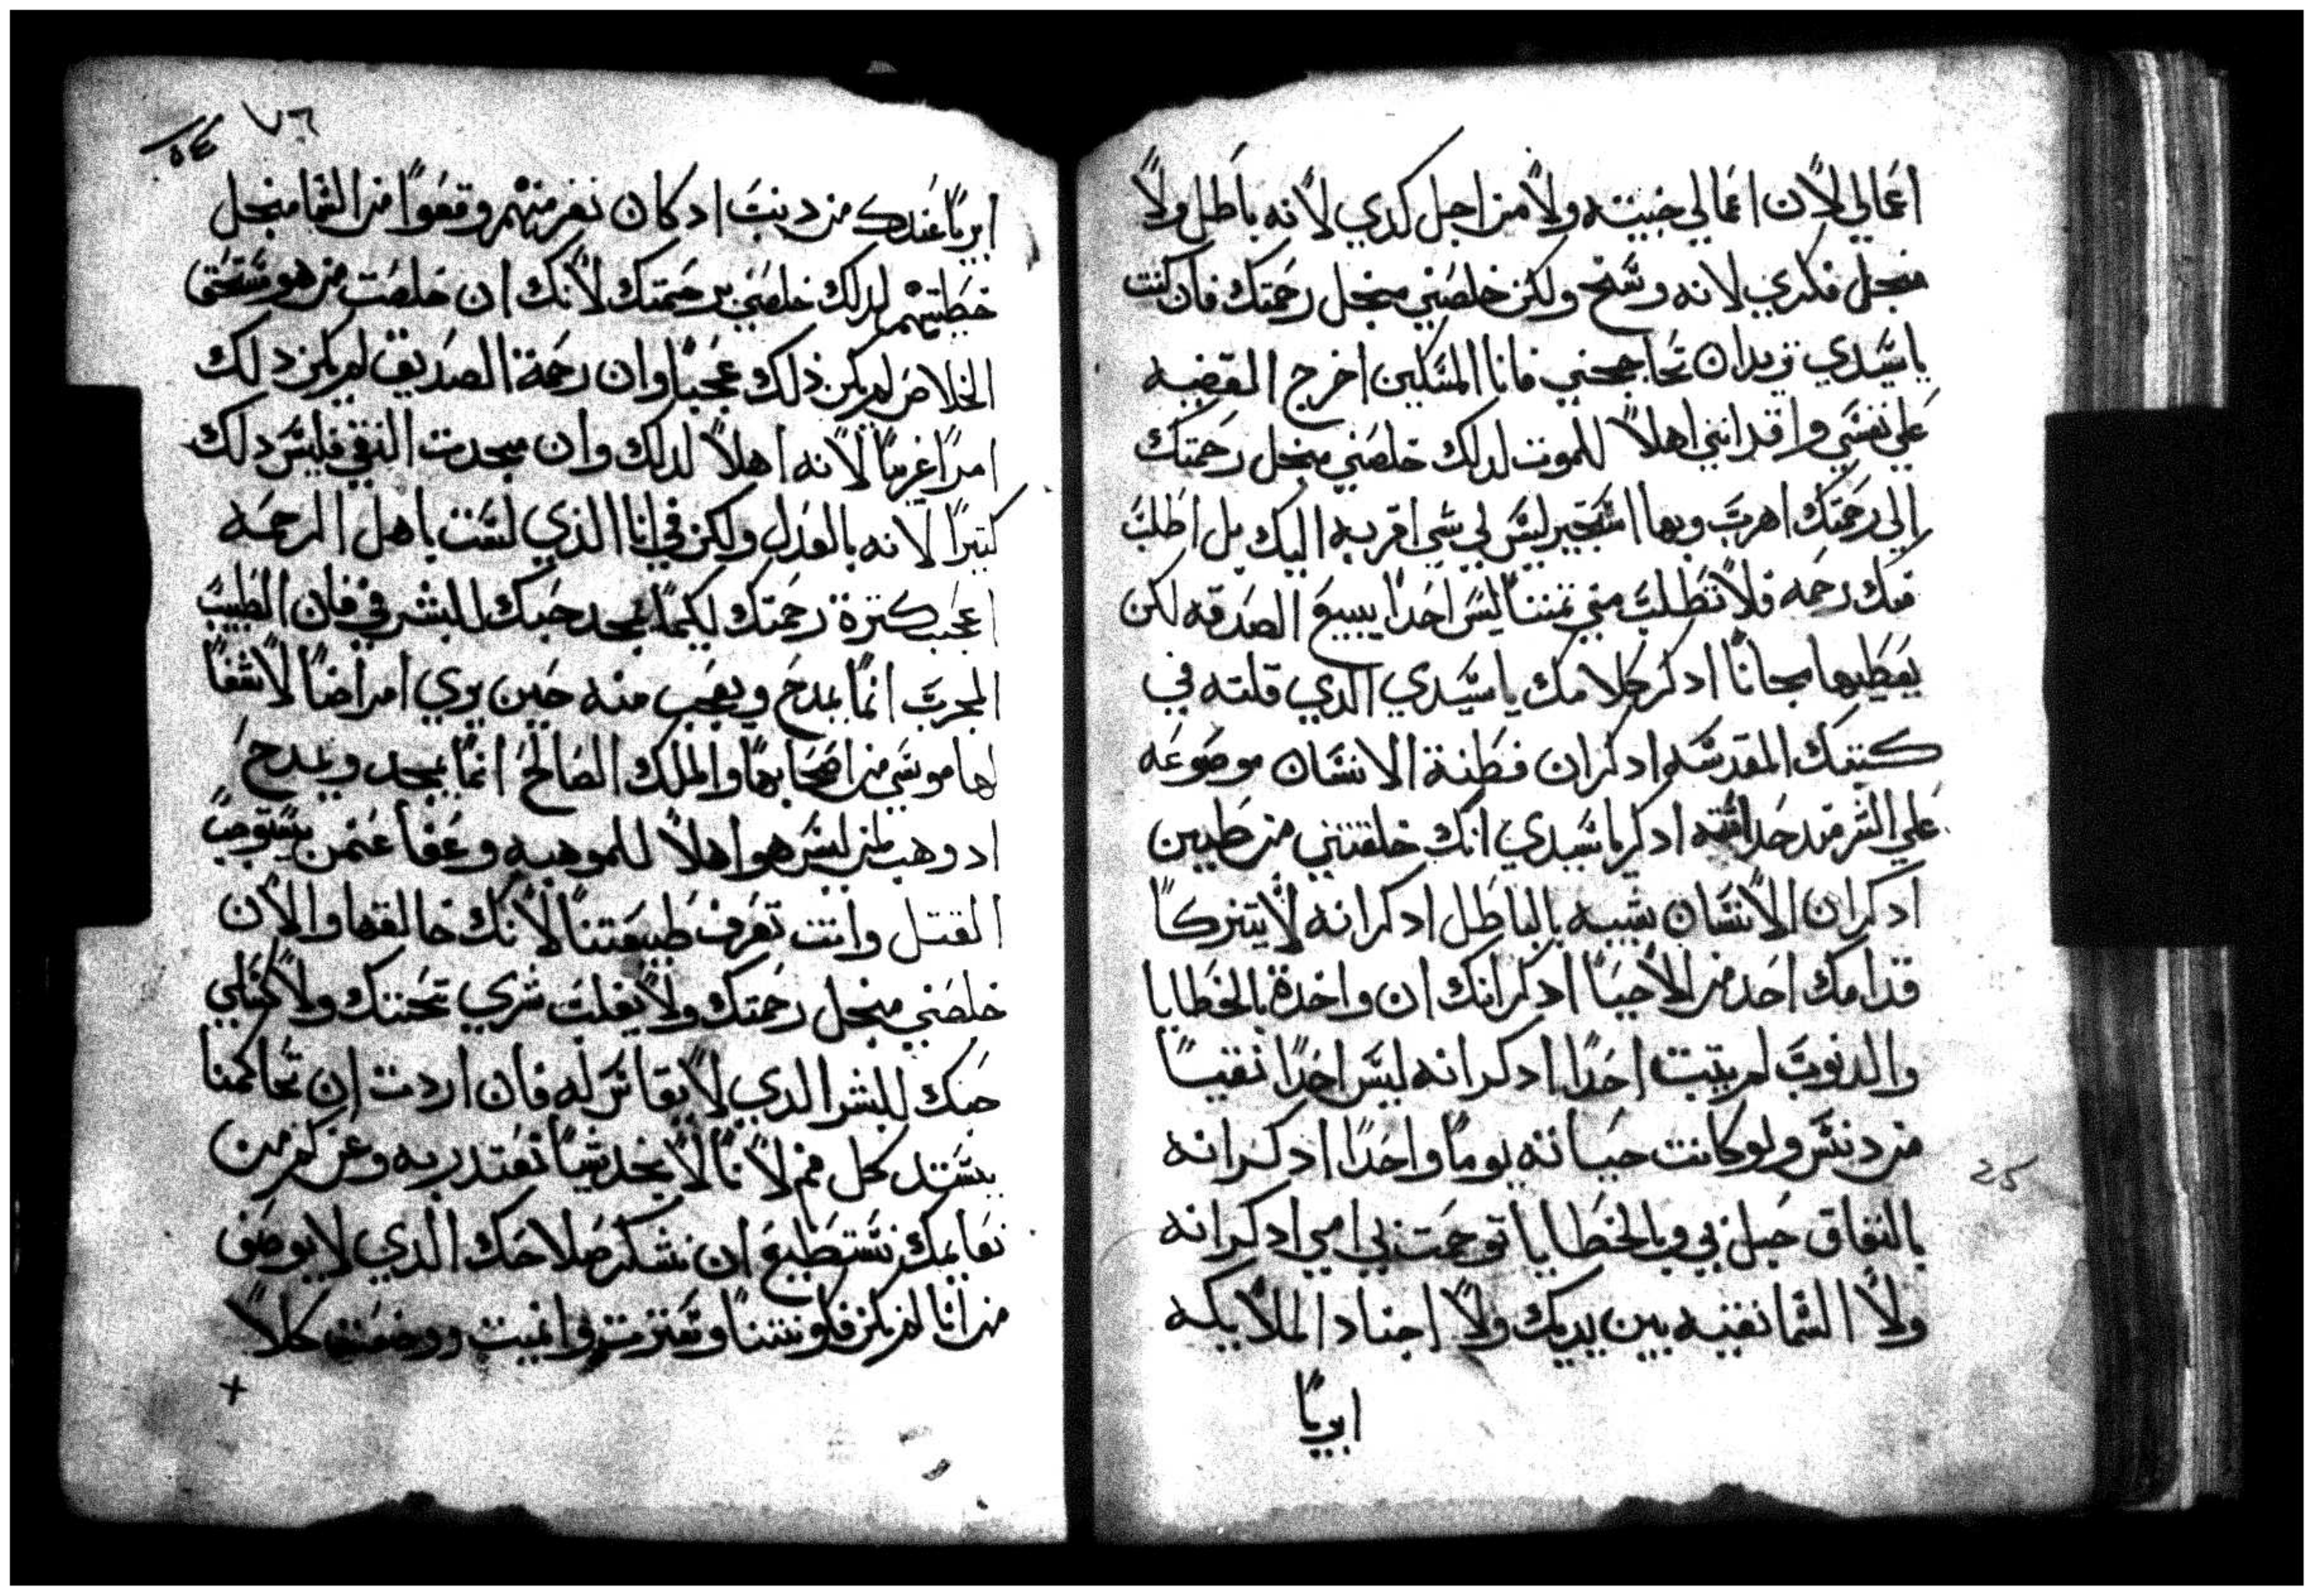 اعمالي لان اعمالي خبيته ولا من اجل كدي لانه باطل ولا
منجل فكري لانه وسخ ولكن خلصني منجل رحمتك فان كنت
يا سيدي تريد ان تحاججني فانا المسكين اخرج القضيه
علي نفسي واقر انني اهلاً للموت لدلك خلصني منجل رحمتك
الي رحمتك اهرب وبها استجير ليس لي شي اقربه اليك بل اطلب
منك رحمه فلا تطلب مني تمننا ليس احداً يبيع الصدقه لكن
يعطيها مجاناً ادكر كلامك يا سيدي الدي قلته في
كتبك المقدسه ادكر ان فطنة الانسان موضوعه
علي الشر مند حداثته ادكر يا سيدي انك خلقتني من طين
ادكر ان الانسان شبيه بالباطل ادكر انه لا يتزكا
قدامك احد من الاحيا ادكر انك ان واخدة بالخطايا
والدنوب لم يتبت احداً ادكر انه ليس احداً نقياً
من دنس ولو كانت حياته يوماً واحداً ادكر انه
بالنفاق حبل بي وبالخطايا توحمت بي امي ادكر انه
ولا السما نقيه بين يديك ولا اجناد الملايكه
ابريا
٧٦
٥٤
ابرياً عندك من دنب ادكان نفر منهم وقعوا من السما منجل
خطيتهم لدلك خلصني برحمتك لانك ان خلصت من هو مستحق
الخلاص لم يكن ذلك عجباً وان رحمة الصديق لم يكن دلك
امراً غريباً لانه اهلاً لدلك وان مجدت النقي فليس دلك
كتيراً لانه بالعدل ولكن في انا الذي لست باهل الرحمه
اعجب كترة رحمتك لكيما يمجد حبك للبشر في فان الطبيب
المجرب انما يمدح ويعجب منه حين يري امراضاً لا شفاً
لها موسي من اصحابها والملك الصالح انما يمجد ويمدح
اد وهب لمن ليس هو اهلاً للموهبه وعفا عمن يستوجب
القتل وانت تعرف طبيعتنا لانك خالقها والان
خلصني منجل رحمتك ولا يغلب شري تحننك ولا
حبك للبشر الدي لا يقاس له فان اردت ان تحاكمنا
يستد كل فم لاننا لا نجد شياً نعتدر به وعن كم من
نعايمك نستطيع ان نشكر صلاحك الدي لا يوصف
من اننا لم نكن فكونتنا وميزت وانميت ووضعت كلا